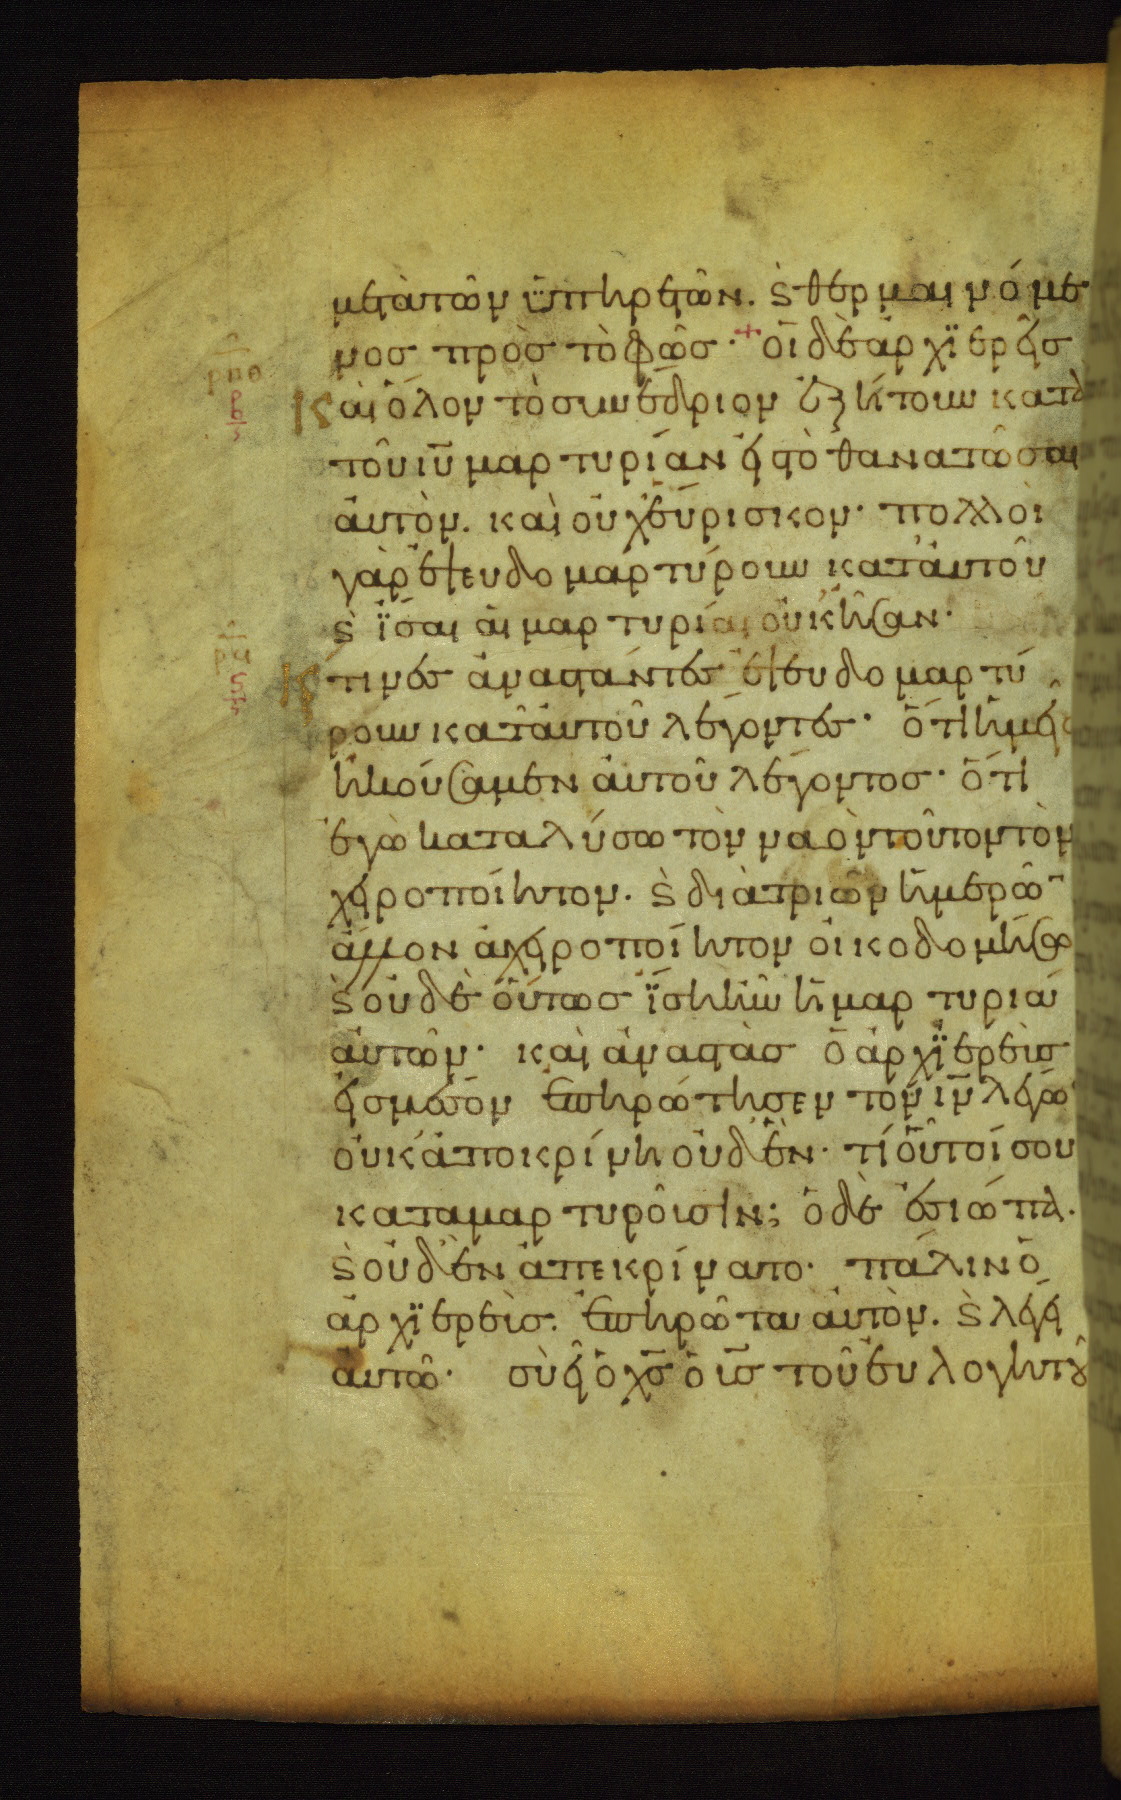 μετὰ τῶν ὑπηρετῶν. ϗ θερμαινόμε
νος πρὸς τὸ φῶς· + οἱ δὲ ἀρχϊερεῖς
Καὶ ὅλον τὸ συνέδριον ἐζήτουν κατὰ
τοῦ ιυ̅ μαρτυρίαν εἰς τὸ θανατῶσαι
αὐτὸν. καὶ οὐχ εὕρισκον· πολλοὶ
γὰρ ἐψευδομαρτύρουν κατ' αὐτοῦ
ϗ ἴσαι αἱ μαρτυρίαι οὐκ ἦσαν·
Καί τινες ἀναστάντες ἐψευδομαρτύ
ρουν κατ' αὐτοῦ λέγοντες· ὅτι ἡμεῖς
ἠκούσαμεν αὐτοῦ λέγοντος· ὅτι
ἐγὼ καταλύσω τὸν ναὸν τοῦτον τὸν
χειροποίητον. ϗ διὰ τριῶν ἡμερῶ̅
ἄλλον ἀχειροποίητον οἰκοδομήσω
ϗ οὐδὲ οὕτως ἴση ἦν ἡ μαρτυρία
αὐτῶν· καὶ ἀναστὰς ὁ ἀρχϊερεὺς
εἰς μέσον ἐπηρώτησεν τὸν ιν̅ λέγω̅
οὐκ ἀποκρίνη οὐδὲν· τί οὗτοί σου
καταμαρτυροῦσιν; ὁ δὲ ἐσιώπα.
ϗ οὐδὲν ἀπεκρίνατο· πάλιν ὁ
ἀρχϊερεὺς. ἐπηρῶτα αὐτὸν. ϗ λέγει
αὐτῶ· σὺ εἶ ὁ χσ̅ ὁ υσ̅ τοῦ εὐλογητοῦ